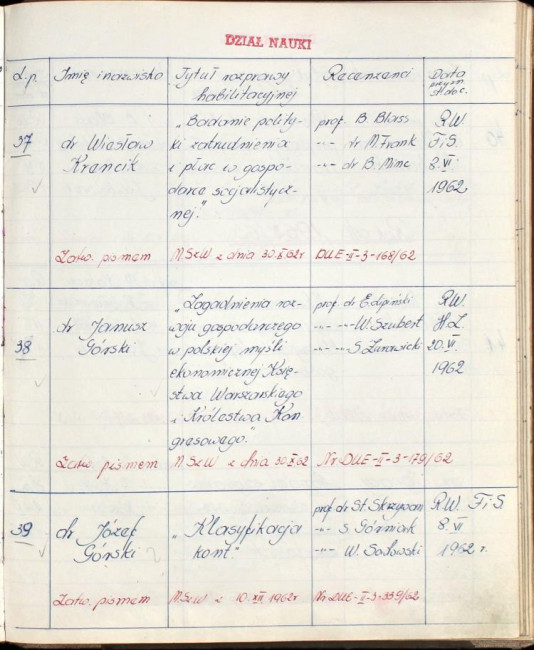 DZIAŁ NAUKI
L.p. Imię i nazwisko Tytuł rozprawy habilitacyjnej Recenzenci Data przyzn. st. doc.
37 dr Wiesław Krencik
"Badanie polity-
ki zatrudnienia
i płac w gospo-
darce socjalistycz-
nej."
prof. B. Blass
-"- dr M. Frank
-"- dr B. Minc
R.W.
F.i S.
8.VI.
1962
Zatw. pismem M.Sz.W z dnia 30.X.62r. DUE-II-3-168/62
38 dr Janusz Górski
"Zagadnienia roz-
woju gospodarczego
w polskiej myśli
ekonomicznej Księ-
stwa Warszawskiego
i Królestwa Kon-
gresowego."
prof. dr E. Lipiński
-"- -"- W. Szubert
-"- -"- S. Żurawicki
R.W.
H.Z.
20.VI.
1962
Zatw. pismem M.Sz.W z dnia 30.X.62 Nr DUE-II-3-179/62
39 dr Józef Górski
"Klasyfikacja
kont."
prof. dr St. Skrzywan
-"- S. Górniak
-"- W.
R.W. F.i S.
8.VI
1962 r.
Zatw. pismem M.Sz.W z 10.XII 1962r Nr DUE-II-3-339/62